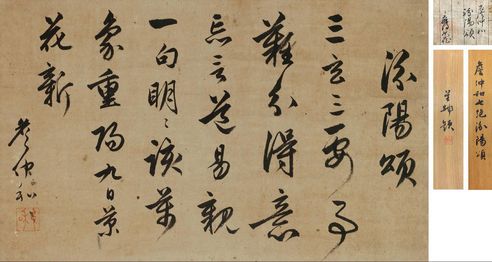 汾陽頌
三玄三要事
難分得意
忘言道易親
一句明々該萬
象重陽九日菊
花新
詹仲和
汾陽頌
詹仲和七絕汾陽頌